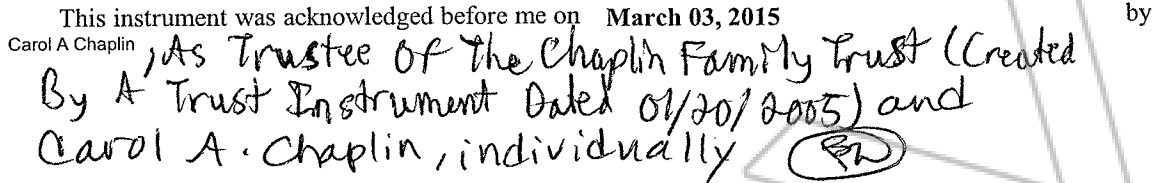 This instrument was acknowledged before me on March 03, 2015 by
Carol A Chaplin , As Trustee Of The Chaplin Family Trust (Created
By A Trust Instrument Dated 01/20/2005) and
Carol A. Chaplin, individually